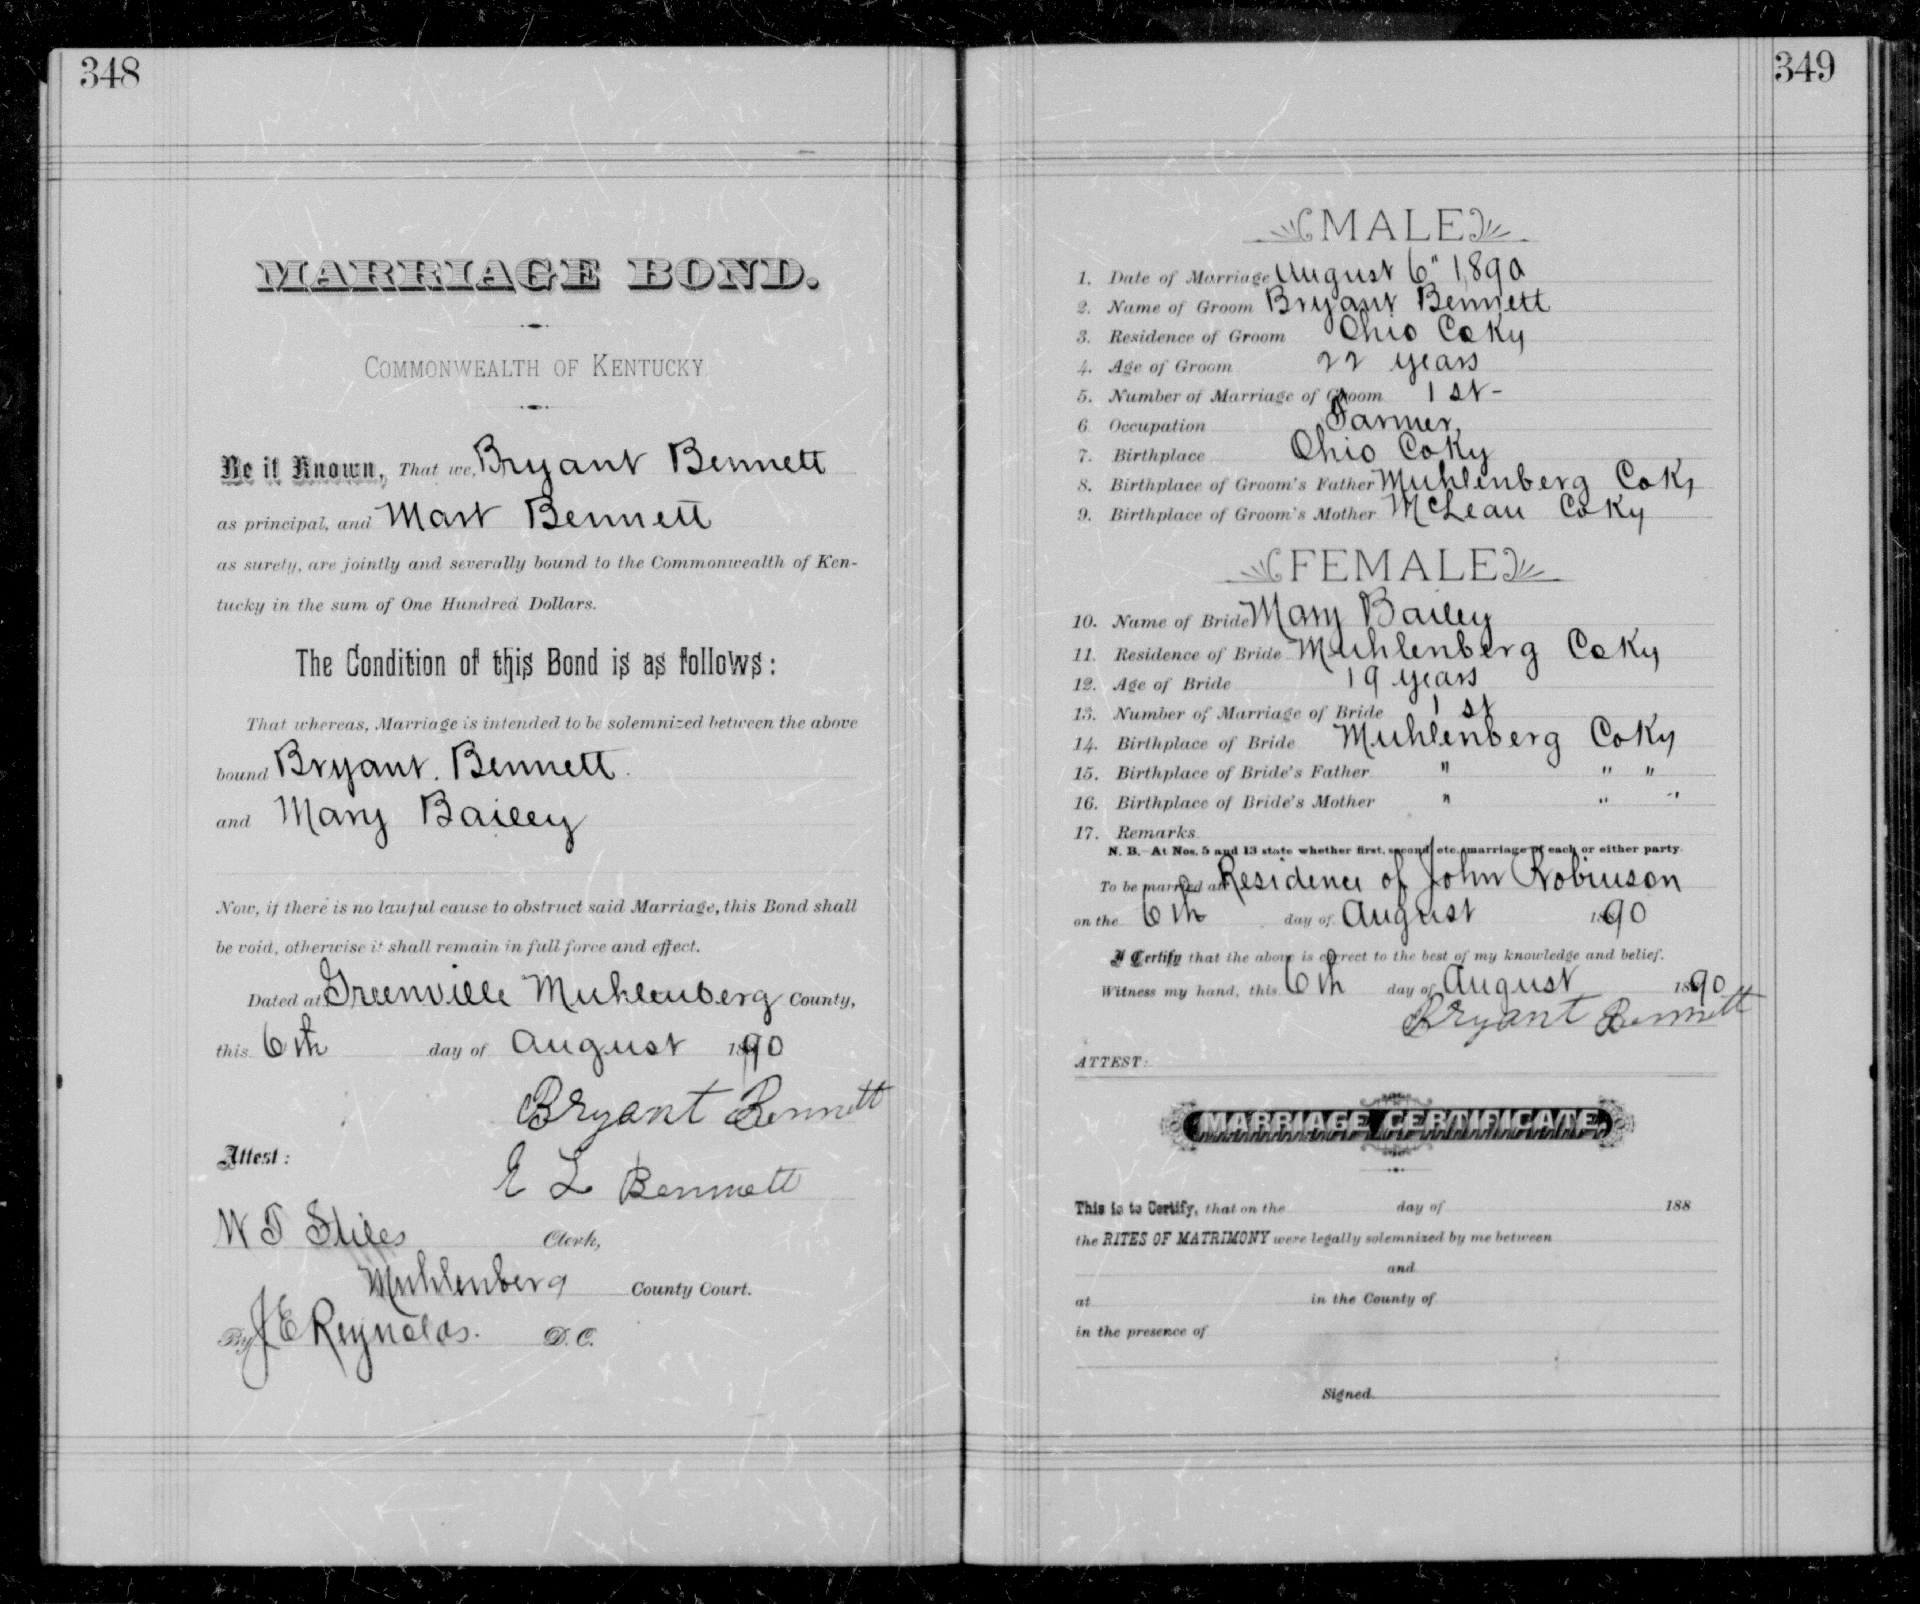 348
MARRIAGE BOND.
COMMONWEALTH OF KENTUCKY
Be it Known, That we, Bryant Bennett
as principal, and Mart Bennett
as surety, are jointly and severally bound to the Commonwealth of Ken-
tucky in the sum of One Hundred Dollars.
The Condition of this Bond is as follows:
That whereas, Marriage is intended to be solemnized between the above
bound Bryant. Bennett.
and Mary Bailey
Now, if there is no lawful cause to obstruct said Marriage, this Bond shall
be void, otherwise it shall remain in full force and effect.
Dated at Greenville Muhlenberg County,
this 6th day of August 1890
Bryant Bennett
Attest:
E L Bennett
W T Stiles Clerk,
Muhlenberg County Court.
By J E Reynolds. D. C.
349
MALE
1. Date of Marriage August 6" 1890
2. Name of Groom Bryant Bennett
3. Residence of Groom Ohio Co Ky
4. Age of Groom 22 years
5. Number of Marriage of Groom 1st-
6. Occupation Farmer,
7. Birthplace Ohio Co Ky
8. Birthplace of Groom's Father Muhlenberg Co Ky
9. Birthplace of Groom's Mother McLean Co Ky
FEMALE
10. Name of Bride Mary Bailey
11. Residence of Bride Muhlenberg Co Ky
12. Age of Bride 19 years
13. Number of Marriage of Bride 1st
14. Birthplace of Bride Muhlenberg Co Ky
15. Birthplace of Bride's Father " " "
16. Birthplace of Bride's Mother " " "
17. Remarks
N. B.—At Nos. 5 and 13 state whether first, second, etc. marriage of each or either party.
To be married at Residence of John Robinson
on the 6th day of August 1890
I Certify that the above is correct to the best of my knowledge and belief.
Witness my hand, this 6th day of August 1890
Bryant Bennett
ATTEST:
MARRIAGE CERTIFICATE.
This is to Certify, that on the day of 188
the RITES OF MATRIMONY were legally solemnized by me between
and
at in the County of
in the presence of
Signed